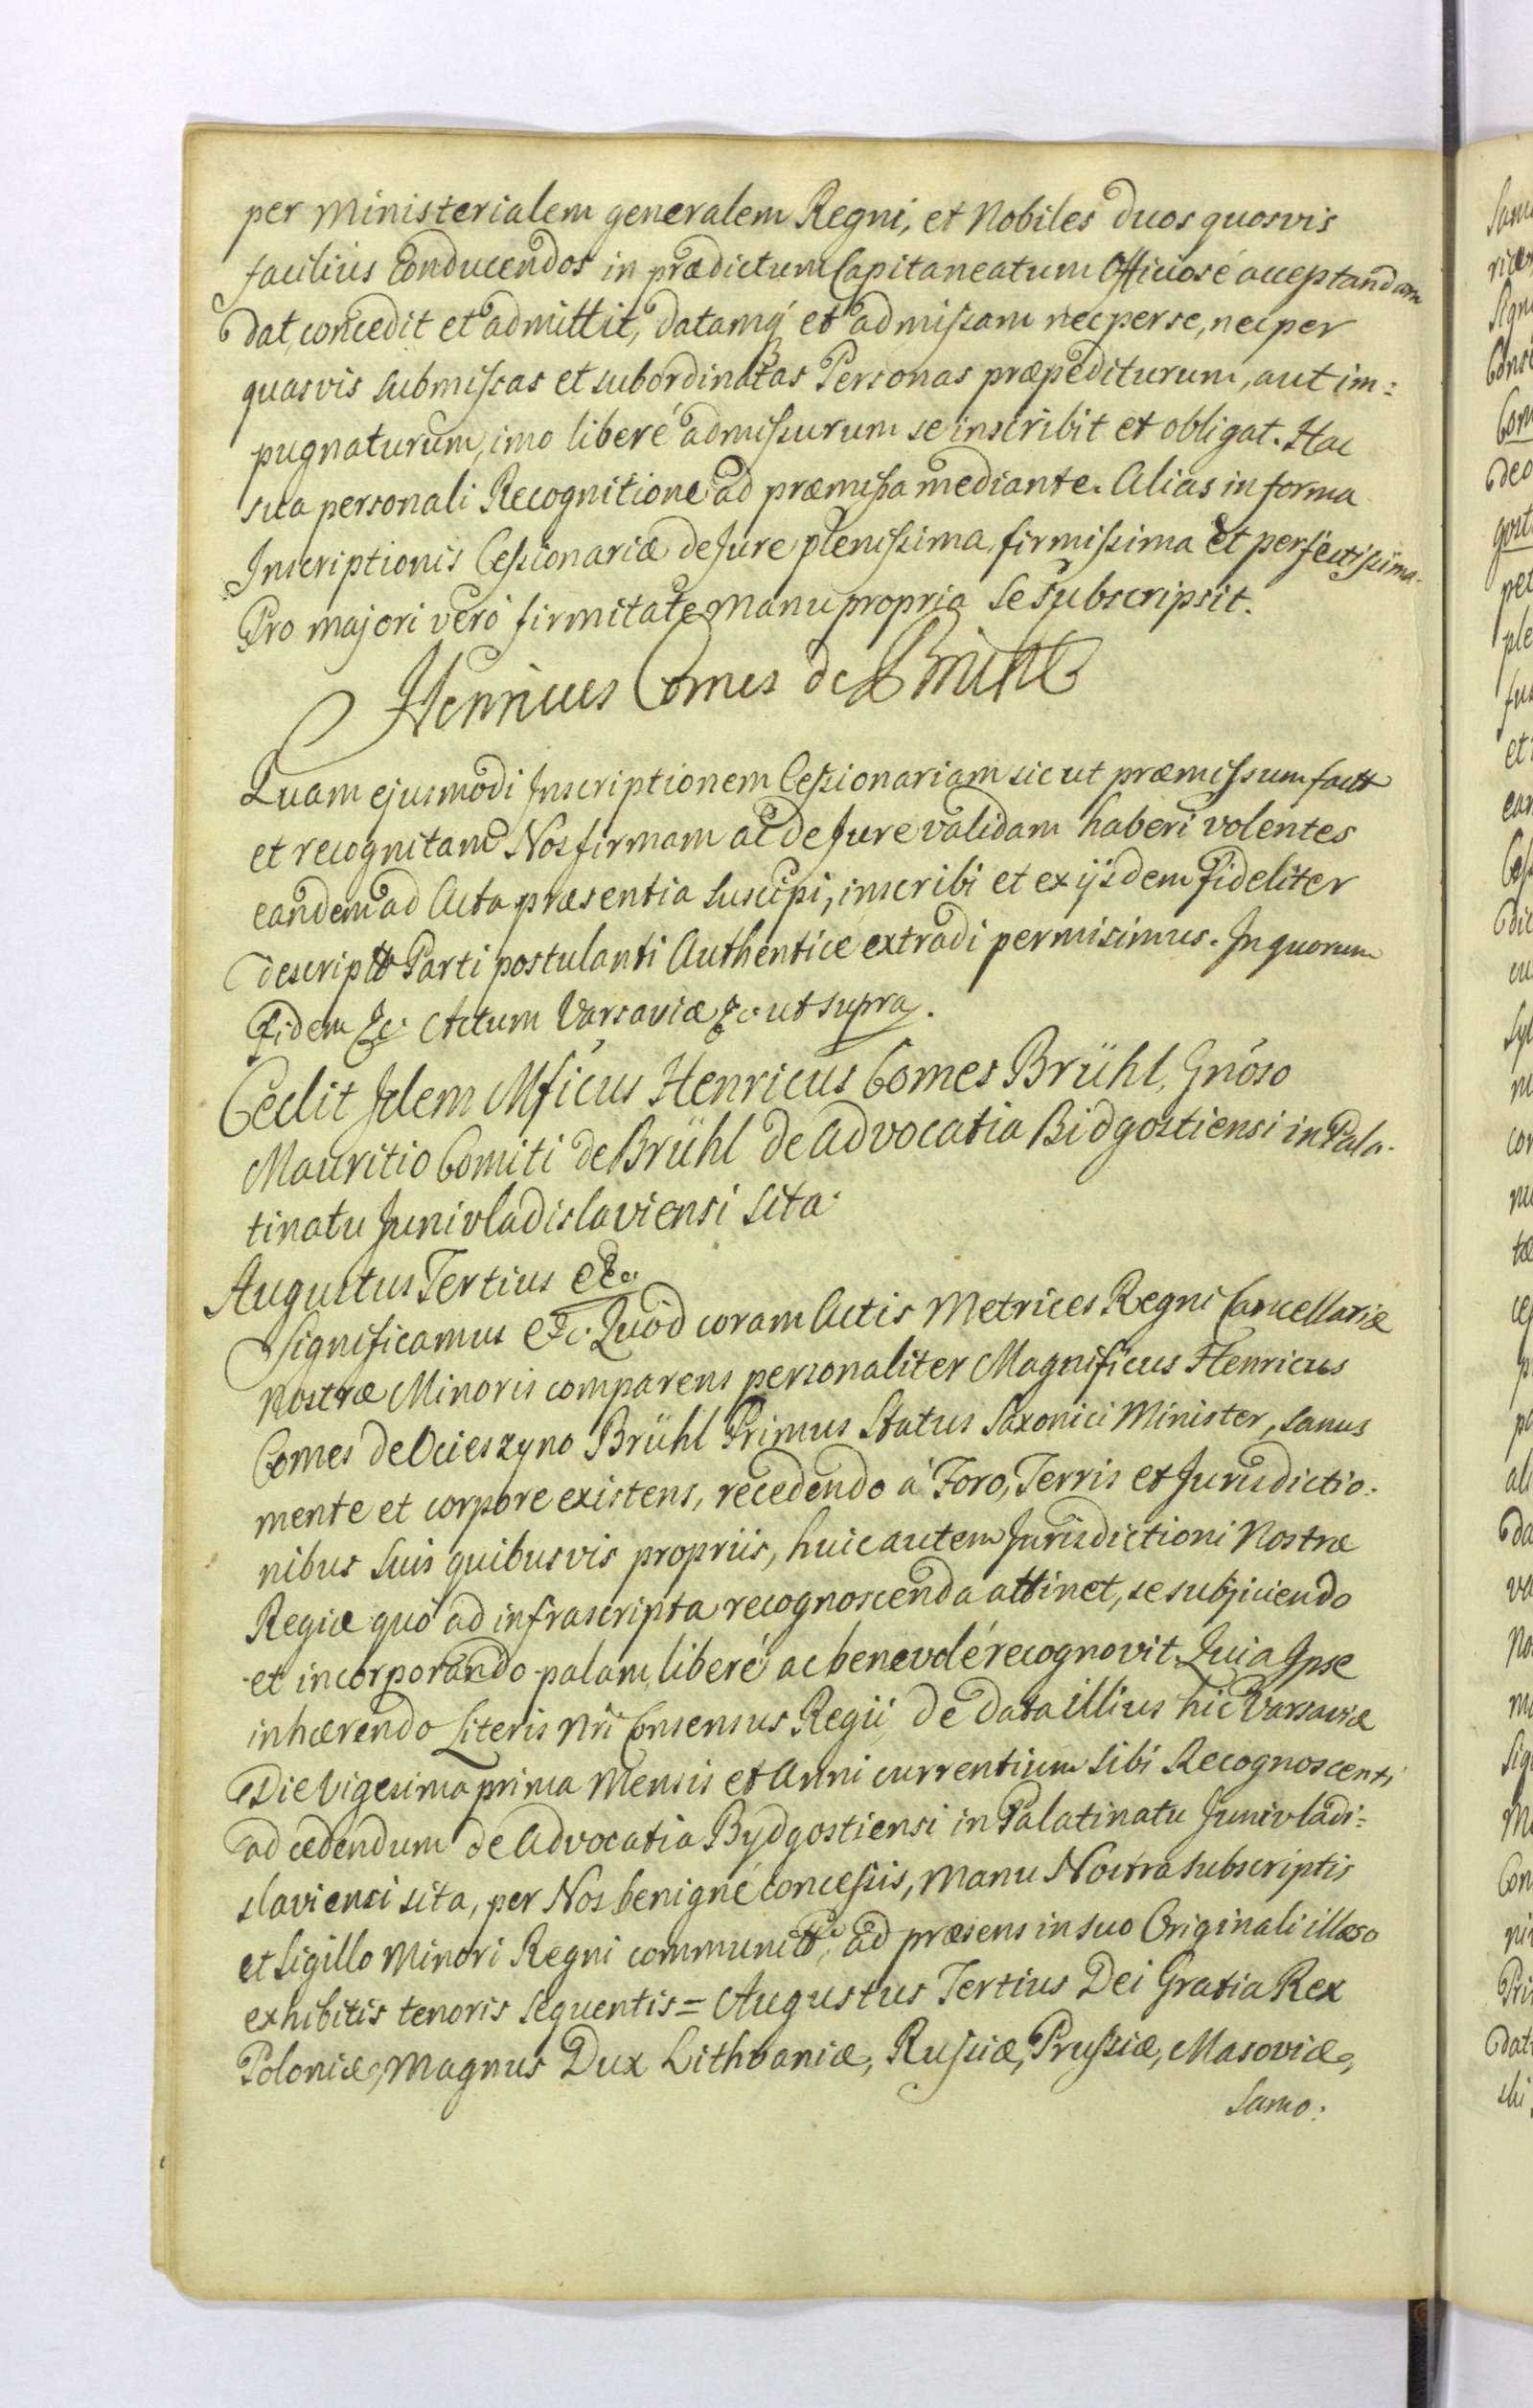 per Ministerialem generalem Regni, et Nobiles duos quosvis
facilius conducendos in prædictum Capitaneatum Officiosé acceptandam
dat, concedit et admittit, datamq́ et admissam nec per se, nec per
quasvis submissas et subordinatas Personas præpediturum, aut im:
pugnaturum, imo liberé admissurum se inscribit et obligat. Hac
sua personali Recognitione ad præmissa mediante. Alias in forma
Inscriptionis Cessionariæ de Jure plenissima, firmissima et perfectissima.
Pro majori veró firmitate Manu propria se subscripsit.
Henricus Comes de Brühl
Quam ejusmodi Inscriptionem Cessionariam sicut præmissum
et recognitam Nos firmam ac de Jure validam haberi volentes
eandem ad Acta præsentia suscipi, inscribi et ex ijsdem fideliter
Parti postulanti Authentice extradi permisimus. In quorum
Fidem &c. Actum Varsaviæ &c. ut supra.
Cedit Idem Mficus Henricus Comes Brühl, Gnoso
Mauritio Comiti de Brühl de Advocatia Bidgostiensi in Pala-
tinatu Junivladislaviensi sita.
Augustus Tertius &c.
Significamus &c. Quod coram Actis Metrices Regni Cancellariæ
Nostræ Minoris comparens personaliter Magnificus Henricus
Comes de Ocieszyno Brühl Primus Status Saxonici Minister, sanus
mente et corpore existens, recedendo á Foro, Terris et Jurisdictio-
nibus suis quibusvis propriis, huic autem Jurisdictioni Nostræ
Regiæ quó ad infrascripta recognoscenda attinet, se subjiciendo
et incorporando palam, liberé ac benevolé recognovit. Quia Ipse
inhærendo Literis Nri Consensus Regii, de data illius hic Varsaviæ
Die Vigesima prima Mensis et Anni currentium sibi Recognoscenti
ad cedendum de Advocatia Bydgostiensi in Palatinatu Junivladi-
slaviensi sita, per Nos benigné concessis, Manu Nostra subscriptis
et Sigillo Minori Regni ad præsens in suo Originali illæso
exhibitis tenoris sequentis = Augustus Tertius Dei Gratia Rex
Poloniæ, Magnus Dux Lithvaniæ, Russiæ, Prussiæ, Masoviæ,
Samo: